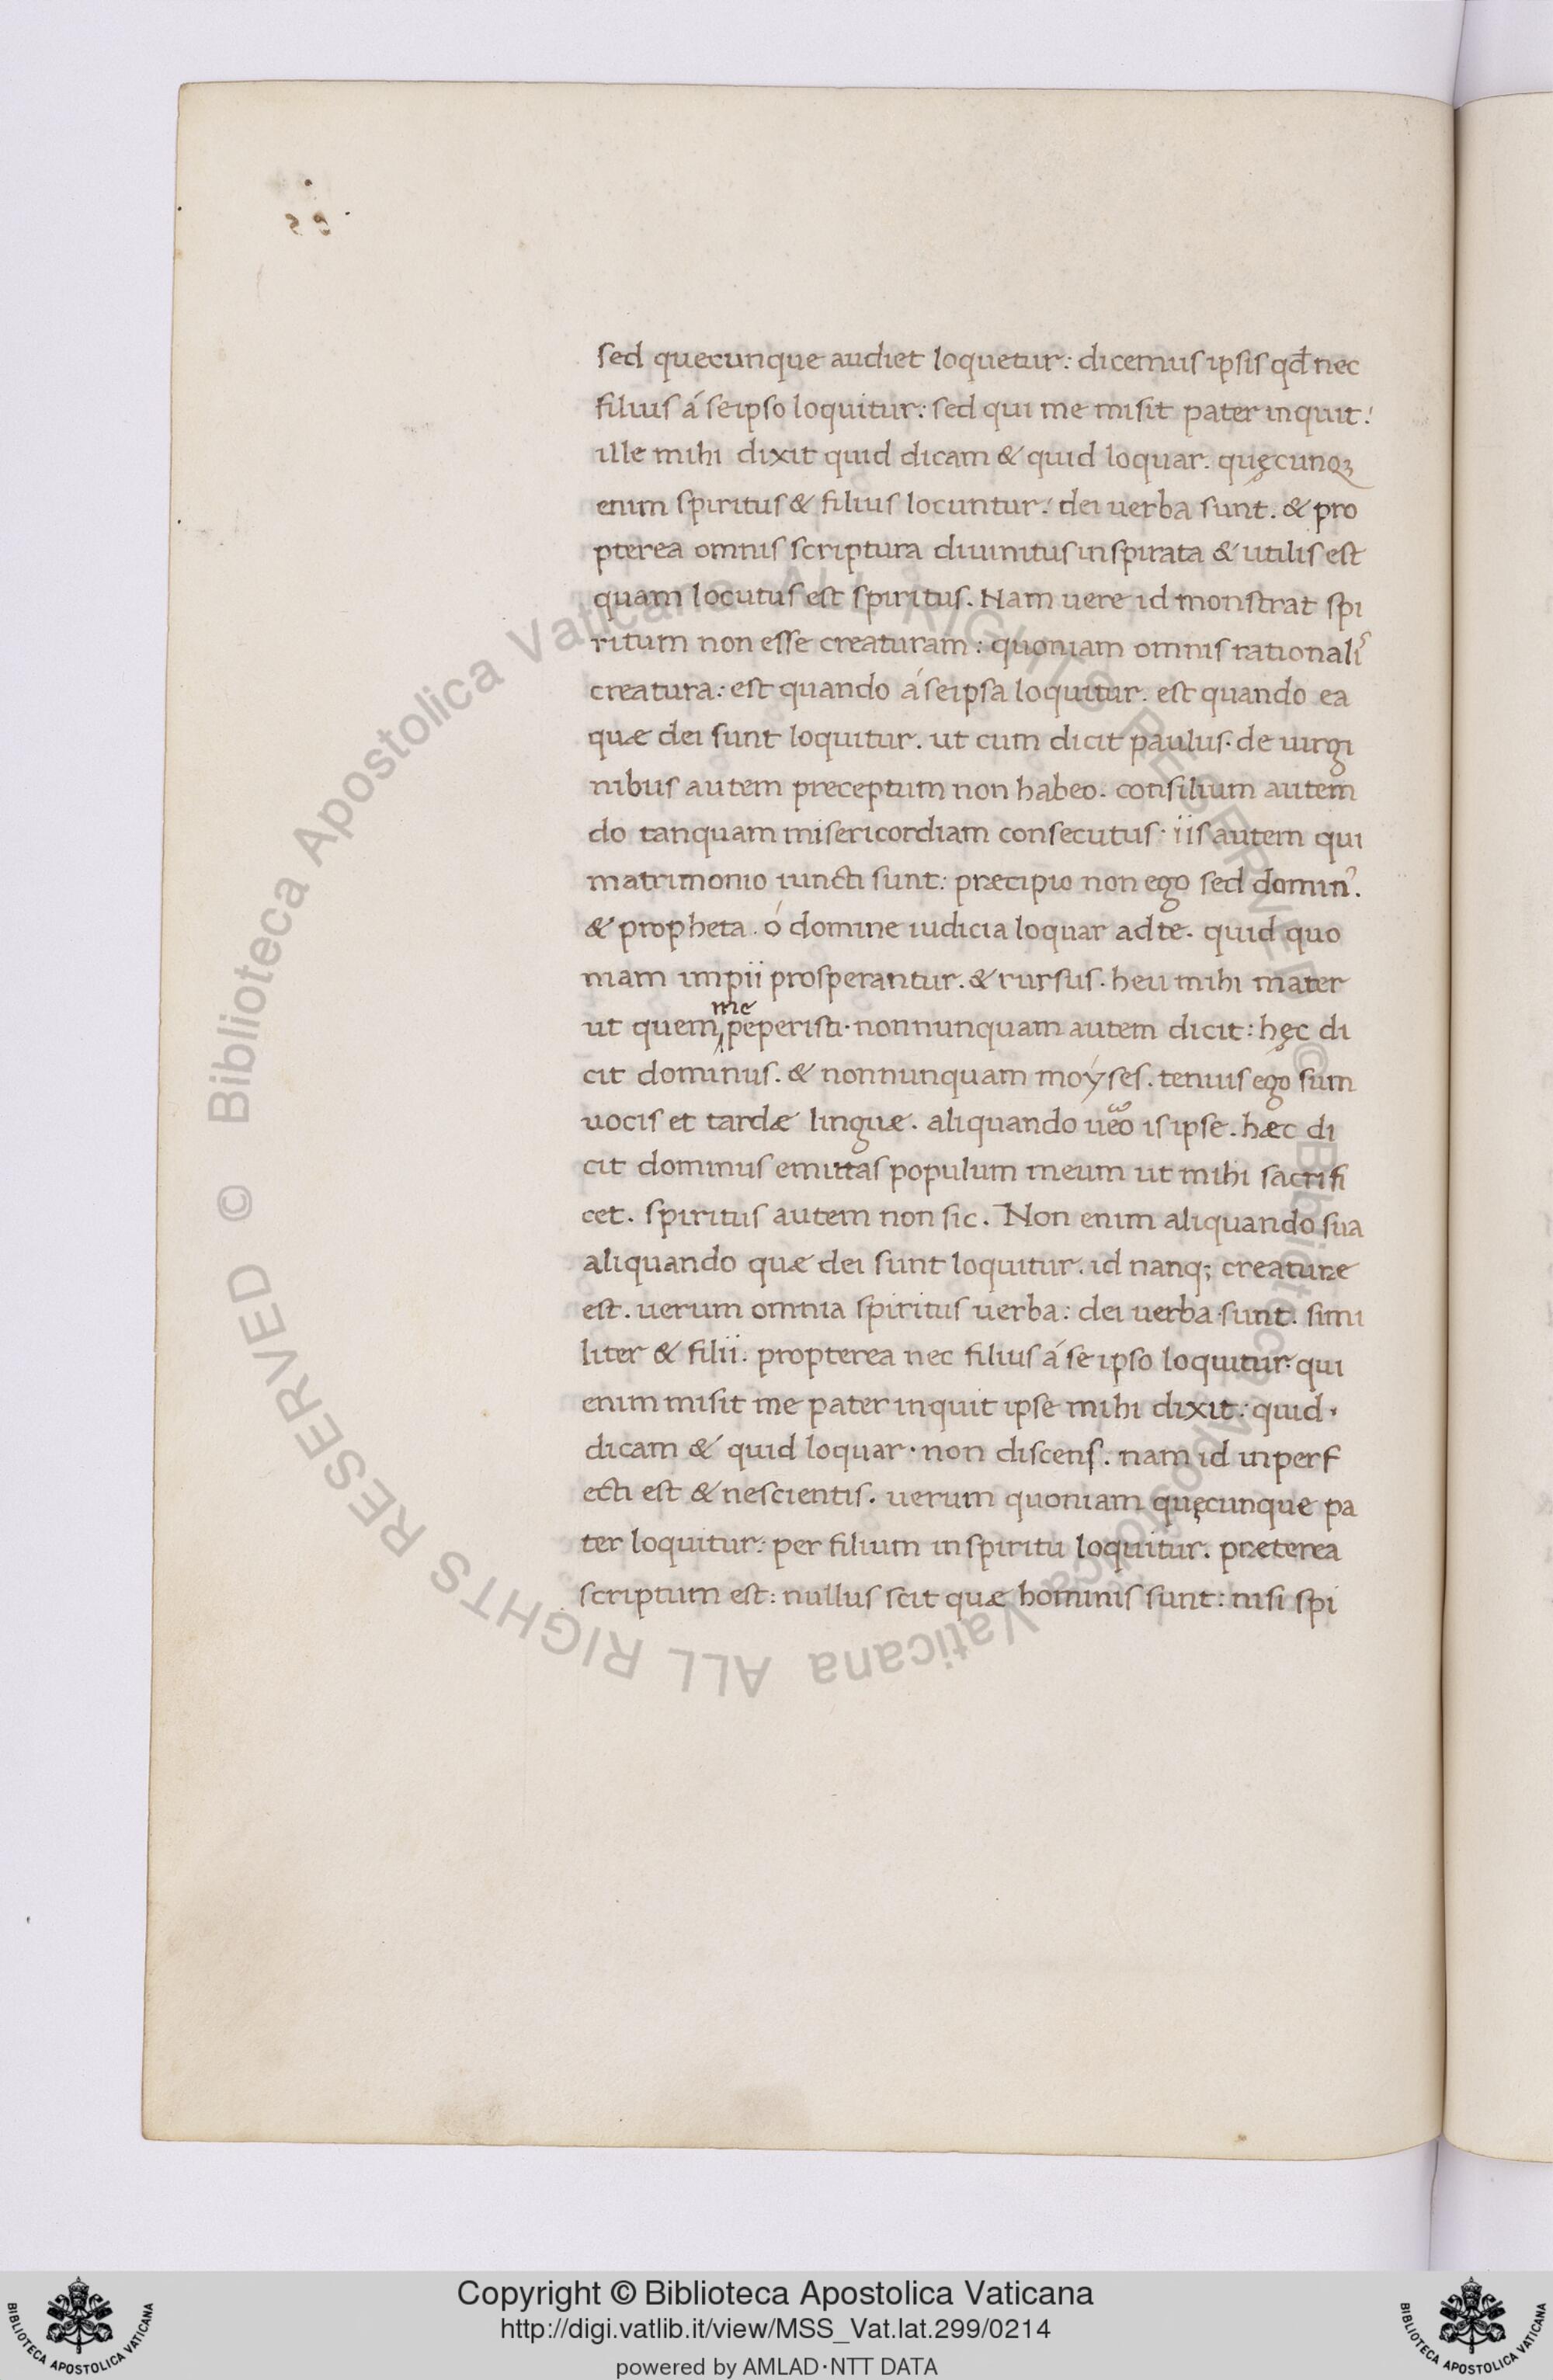 sed quecunque audiet loquetur: dicemus ipsis qđ nec
filius á seipso loquitur: sed qui me misit pater inquit:
ille mihi dixit quid dicam & quid loquar. quęcunqꝫ
enim spiritus & filius locuntur: dei uerba sunt. & pro
pterea omnis scriptura diuinitus inspirata & utilis est
quam locutus est spiritus. Nam uere id monstrat spi
ritum non esse creaturam: quoniam omnis rationali᾽
creatura: est quando á seipsa loquitur. est quando ea
quæ dei sunt loquitur. ut cum dicit paulus. de uirgi
nibus autem preceptum non habeo. consilium autem
do tanquam misericordiam consecutus. iis autem qui
matrimonio iuncti sunt: præcipio non ego sed domin᾽.
& propheta. ó domine iudicia loquar ad te. quid quo
niam impii prosperantur. & rursus. heu mihi mater
ut quem me peperisti. nonnunquam autem dicit: hęc di
cit dominus. & nonnunquam moyses. tenuis ego sum
uocis et tardæ linguæ. aliquando ueo is ipse. hæc di
cit dominus emittas populum meum ut mihi sacrifi
cet. spiritus autem non sic. Non enim aliquando sua
aliquando quæ dei sunt loquitur. id nanq; creaturæ
est. uerum omnia spiritus uerba: dei uerba sunt. simi
liter & filii. propterea nec filius á se ipso loquitur: qui
enim misit me pater inquit ipse mihi dixit: quid
dicam & quid loquar. non discens. nam id inperf
ecti est & nescientis. uerum quoniam quęcunque pa
ter loquitur: per filium in spiritu loquitur. præterea
scriptum est: nullus scit quæ hominis sunt: nisi spi
© Biblioteca Apostolica Vaticana ALL RIGHTS RESERVED © Biblioteca Apostolica Vaticana ALL RIGHTS RESERVED
BIBLIOTECA APOSTOLICA VATICANA
Copyright © Biblioteca Apostolica Vaticana
http://digi.vatlib.it/view/MSS_Vat.lat.299/0214
powered by AMLAD·NTT DATA
BIBLIOTECA APOSTOLICA VATICANA